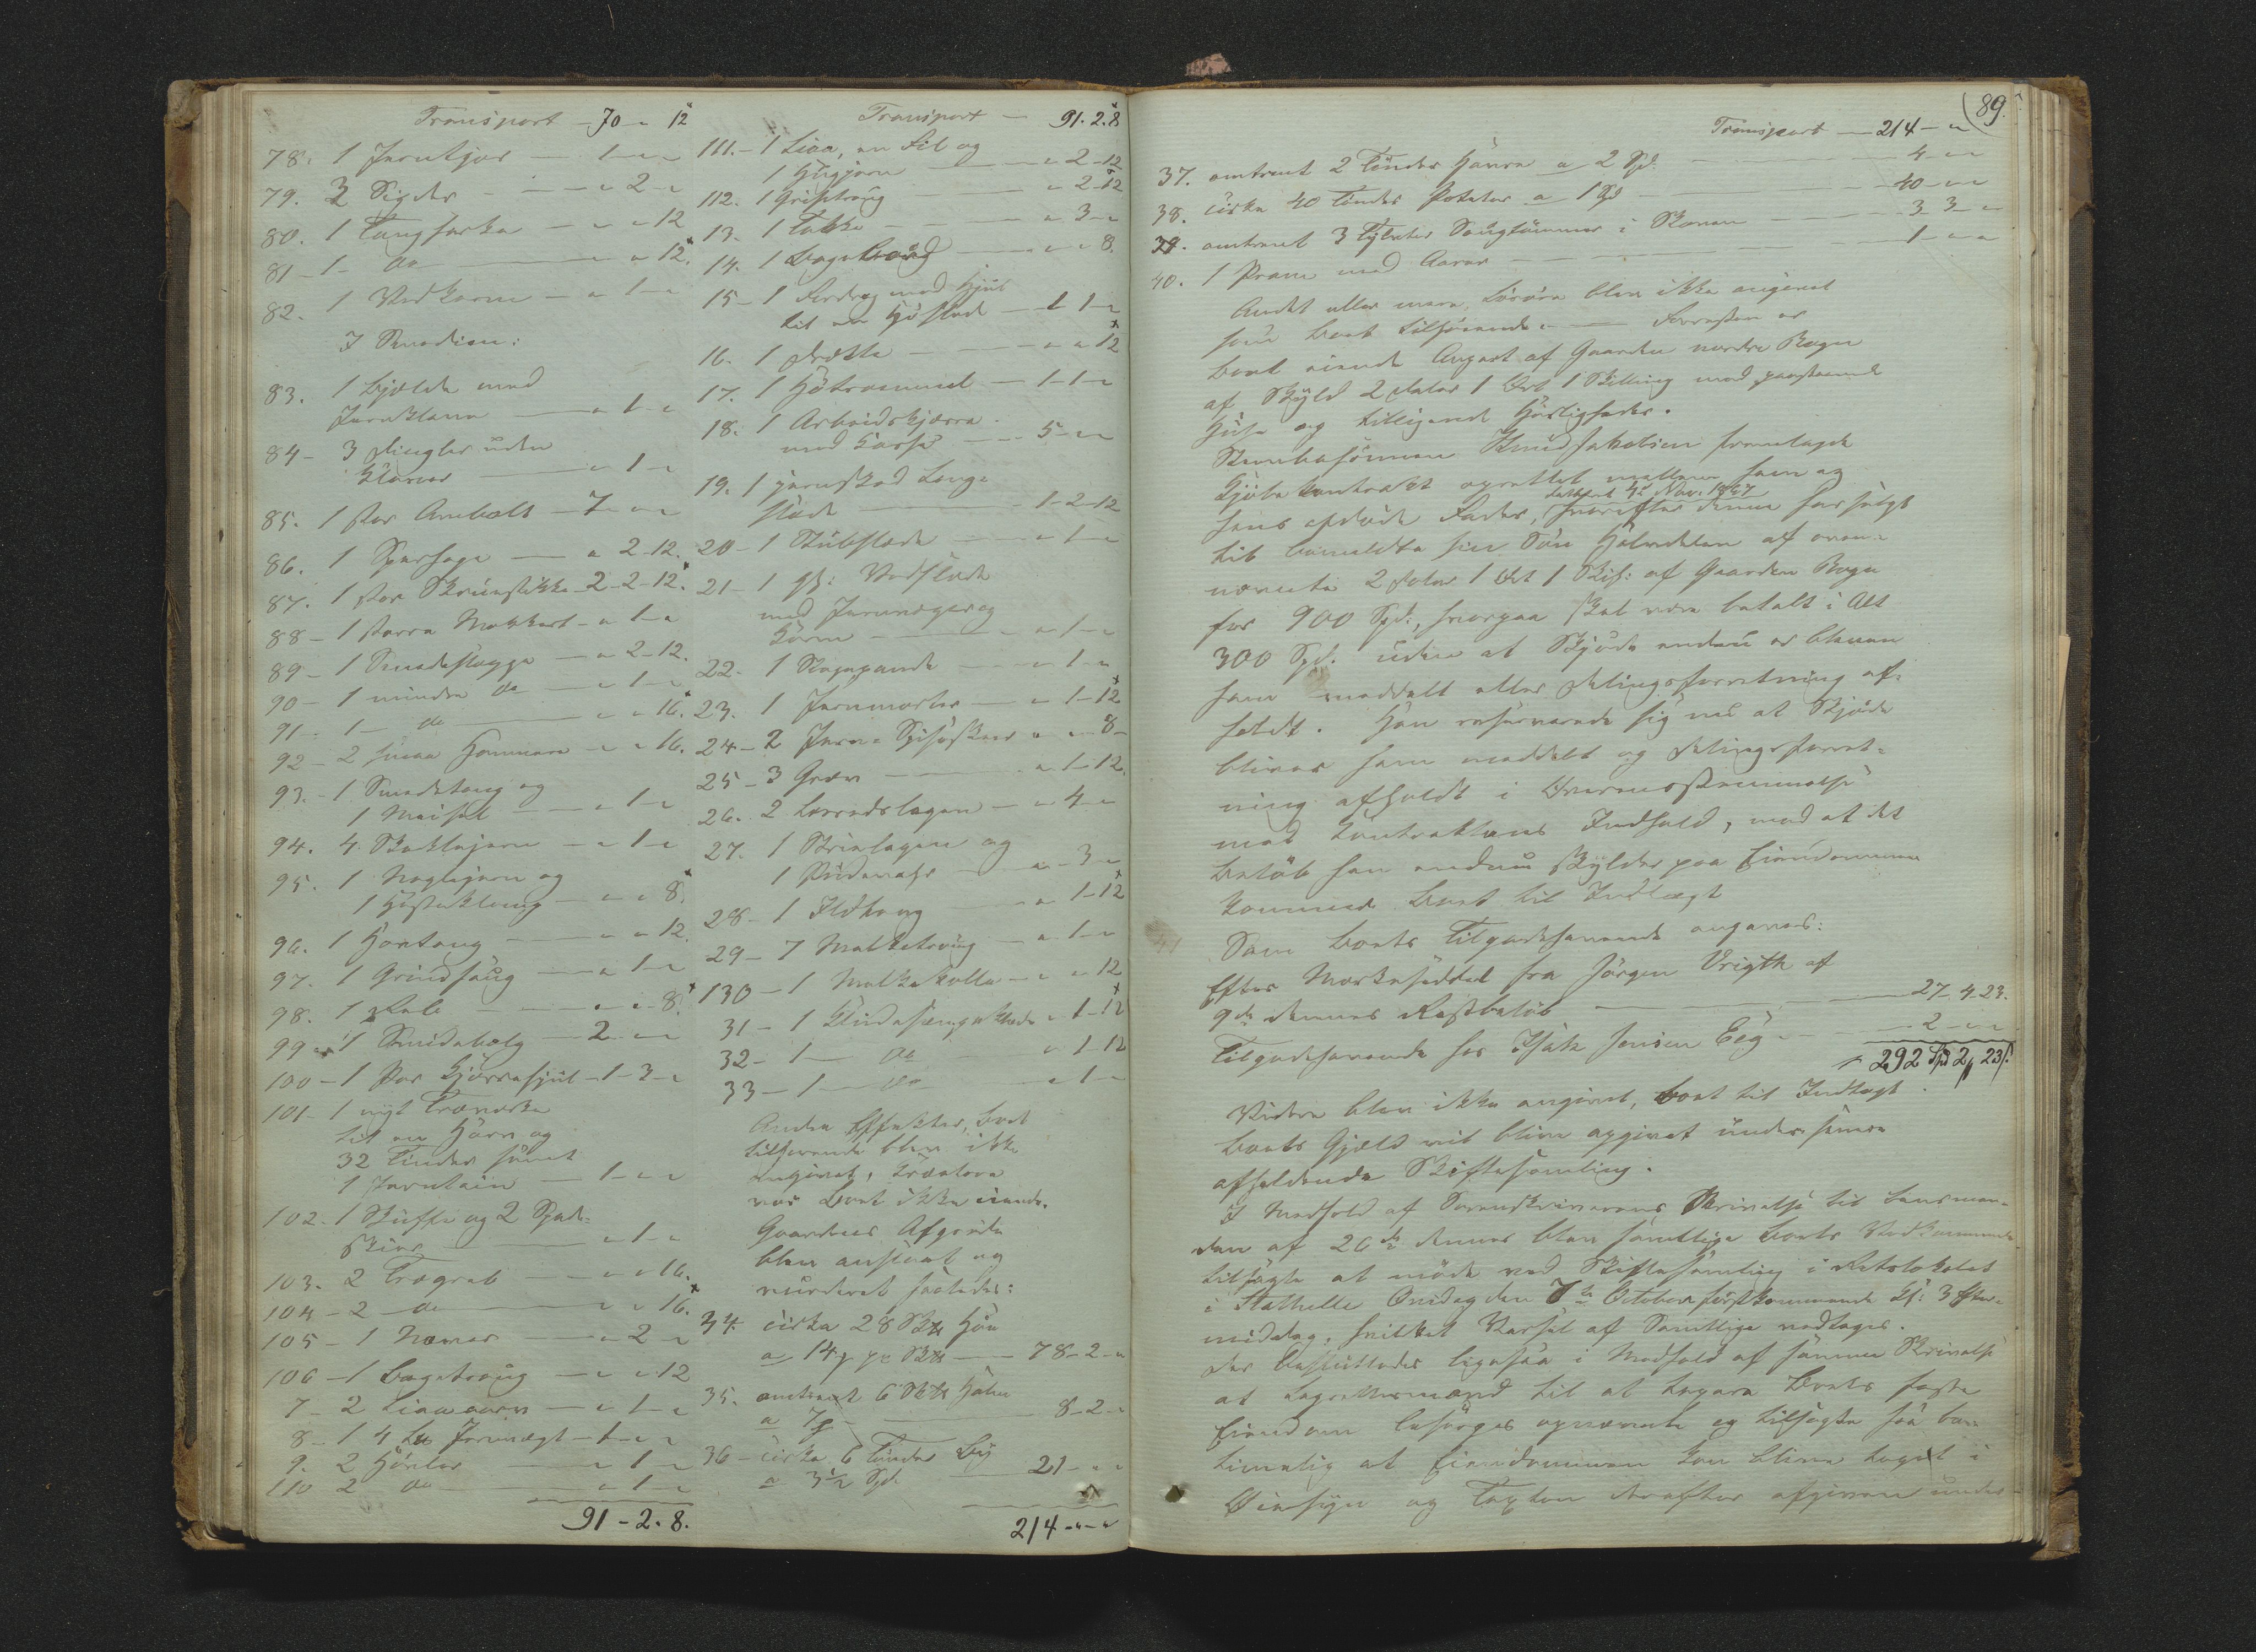 Transport - 70 - " 12
78. 1 Jernkjær - 1 - " - "
79. 3 Sigder - " - 2 - "
80. 1 Langharke - " - " 12
81 - 1 - do - " - " 12.
82. 1 Vedkarm - " - 1 - "
I Smedien:
83. 1 med
Jernklave - " - 1 - "
84 - 3 uden
Klaver - " - 1 - "
85. 1 stor Ambolt - 7 - " - "
86. 1 - " 2 - 12.
87. 1 stor Skruestikke - 2 - 2 - 12.
88 - 1 større - " 1 - "
89 - 1 Smedeslægge - " 2 - 12.
90 - 1 mindre do - " - 1 - "
91 - 1 - do - " - " 16.
92 - 2 smaa Hammere - " - " 16.
93. - 1 Smedetang og
1 Meisel - " - 1 - "
94. 4 - " - 1 - "
95. 1 Naglejern og
1 - " - " 8.
96. 1 Hovtang - " - " 12.
97. 1 Grindsaug - " - 1 - "
98. 1 - " - " 8.
99 - 1 Smidebælg - 2 - " - "
100 - 1 Par Kjærrehjul - 1 - 3 - "
101 - 1 nyt
til en Harv og
32 Tinder samt
1 - 1 - " - "
102 - 1 Skuffe og 2 Spade-
skoer - " - 1 - "
103. 2 Trægreb - " - " 16.
104 - 2 - do - " - " 16.
105 - 1 Naver - " - 2 - "
106 - 1 Bagetroug - " - " 12
7 - 2 - " - 1 - "
8 - 1 4 Jernvægt - 1 - " - "
9. 2 Høvler - " - 1 - "
110 2 do - " - 1 - "
91 - 2 . 8.
Transport - 91. 2. 8
111. - 1 Liaa, en Fil og
1 - " 2 - 12
112. 1 - " 2 - 12
13. 1 Takke - " 3 - "
14. 1 - " - " 8.
15 - 1 med Hjul
til en - 1 1 - "
16. 1 - " - " 12
17. 1 - 1 - 1 - "
18. 1 Arbeidskjærre
med Kasse - 5 - " - "
19. 1 jernskod Lang-
slæde - 1 - 2 - 12
20 - 1 Stubslæde - " 1 - "
21 - 1 gl: Vedslæde
med og
Karm - " - 1 - "
22. 1 Stegepande - " 1 - "
23. 1 Jernmorter - " 1 - 12
24 - 2 Jern - Spiseskeer " - " 8 -
25 - 3 - " 1 - 12.
26. 2 Lerredslagen - " 4 - "
27. 1 og
1 Pudevahr - " - 3 - "
28 - 1 Ildtang - " 1 - 12
29 - 7 Melketroug - " 1 - "
130 - 1 Melkekolle - " - " 12
31 - 1 - 1 - 12
32 - 1 - do " 1 12
33 - 1 - do " 1 -
Andre Effekter, Boet
tilhørende blev ikke
angivet,
var Boet ikke eiende.
Gaardens Afgrøde
blev anseet og
vurderet saaledes:
34. cirka 28 Høe
a 14 - 78 - 2 - "
35. omtrent 6 Halm
a 7 - 8 - 2 - "
36 - cirka 6 Tønder Byg
a 3½ Spd - 21 - " - "
214 - " - "
89.
Transport - 214 - " - "
37. omtrent 2 Tønder Havre a 2 Spd. - 4 - " - "
38. cirka 40 Tønder Poteter a 1 Spd - 40 - " - "
39. omtrent 3 Tylvter Saugtømmer i Skoven - 3 3 - "
40. 1 Pram med Aarer - 1 - " - "
Andet eller mere Løsøre blev ikke angivet
som Boet tilhørende. - Forresten er
Boet eiende Anpart af Gaarden nordre Rogn
af Skyld 2 Daler 1 Ort 1 Skilling med paastaaende
Huse og tilliggende Herligheder.
Stervbosønnen Knud Jakobsen fremlagde
Kjøbekontrakt oprettet mellem ham og
dateret 4de Nov. 1867
hans afdøde Fader, hvorefter denne har solgt
til bemeldte sin Søn Halvdelen af oven-
nævnte 2 Daler 1 Ort 1 Skil: af Gaarden Rogn
for 900 Spd:, hvorpaa skal være betalt i Alt
300 Spd. uden at Skjøde endnu er bleven
ham meddelt eller Delingsforretning af-
holdt. Han reserverede sig nu at Skjøde
bliver ham meddelt og Delingsforret-
ning afholdt i Overensstemmelse
med Kontraktens Indhold, med at det
Beløb han endnu skylder paa Eiendommen
kommer Boet til Indtægt
Som Boets Tilgodehavende angaves:
Efter Merkeseddel fra Jørgen Wrigth af
9de dennes Restbeløb - 27 - 4 - 23.
Tilgodehavende hos Isak Jensen Eeg - 2 - " - "
292 Spd 2 23 s.
Videre blev ikke angivet, Boet til Indtægt.
Boets Gjæld vil blive opgivet under senere
afholdende Skiftesamling.
I Medhold af Sorenskriverens Skrivelse til Lensman-
den af 26de dennes blev samtlige Boets Vedkommende
tilsagte at møde ved Skiftesamling i Retslokalet
i Stathelle Onsdag den 7de October førstkommende Kl: 3 Efter-
middag, hvilket Varsel af Samtlige vedtoges.
Der besluttedes ligesaa i Medhold af samme Skrivelse
at Lagrettesmænd til at taxere Boets faste
Eiendom besørges opnævnte og tilsagte saa be-
timelig at Eiendommen kan blive taget i
Øiesyn og Taxten derefter afgiven under